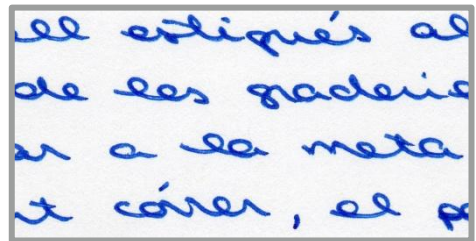 ell estigués al
de les graderie
ar a la meta
nt córrer, el pe